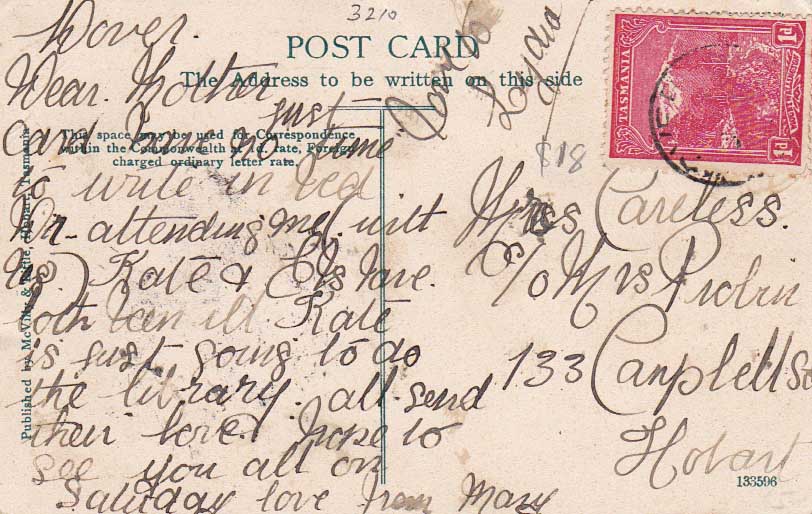 3210
Dover.
POST CARD
The Address to be written on this side
Dear. Mother
just
This space may be used for Correspondence
within the Commonwealth at 1d. rate, Foreign
charged ordinary letter rate.
to write in bed
attending me. wilt
Kate & Els have.
both been ill Kate
is just going to do
the library. all. send
their love. hope to
see you all on
Saturday love from Mary
Love to
Lydia
$18
TASMANIA
1d
1d
Miss Careless.
C/o Mrs Probin
133 Canpbell St
Hobart
133596
Published by McVilly & Little, Hobart, Tasmania